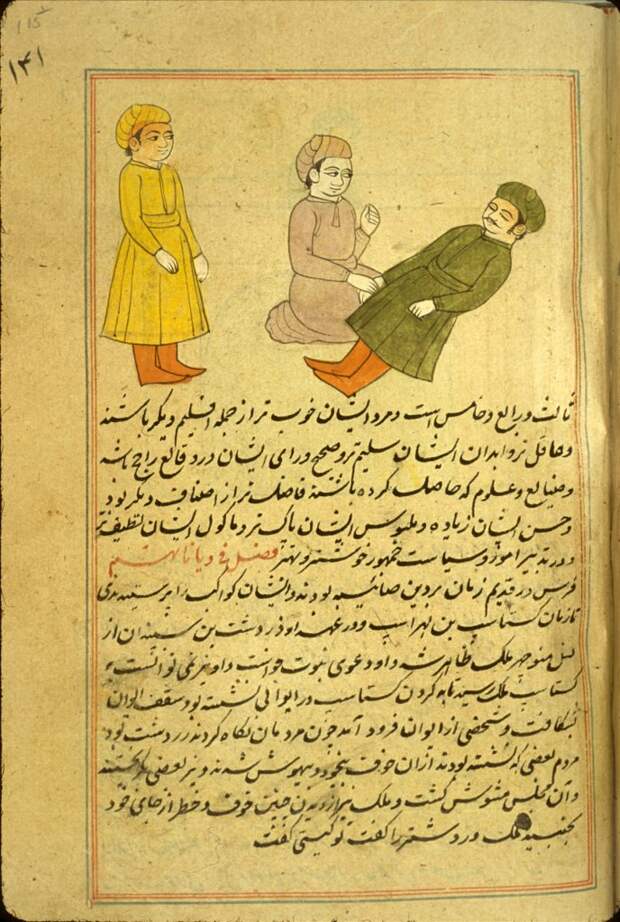 115
۱۴۱
ثالث و رابع و خامس است و مردم ایشان خوب تر از جمله اقلیم دیگر باشند
و عاقل تر و ابدان ایشان سلیم تر و صحیح و رای ایشان در وقائع راجح باشد
و صنایع و علوم که حاصل کرده باشند فاضل تر از اصناف دیگر بود
و حسن ایشان زیاده و ملبوس ایشان پاک تر و ماکول ایشان لطیف تر
و در تدبیر امور و سیاست جمهور خوشتر و بهتر فصل فی دیاناتهم
فرس در قدیم زمان بر دین صائبیه بودند و ایشان کواکب را پرستیدندی
تا زمان گشتاسب بن لهراسب و در عهد او زردشت بن از
نسل منوچهر ملک ظاهر شد و او دعوی نبوت خواست و او توانست به
گشتاسب ملک رسید گشتاسب در ایوانی نشسته بود سقف ایوان
بشکافت و شخصی از ایوان فرود آمد چون مردمان نگاه کردند زردشت بود
مردم بعضی که نشسته بودند از ان خوف بیخود و بیهوش شدند و نیز بعضی بگریختند
و آن مجلس مشوش گشت و ملک نیز از دیدن چنین خوف و خطر از جای خود
بجنبید ملک زردشت را گفت تو کیستی گفت